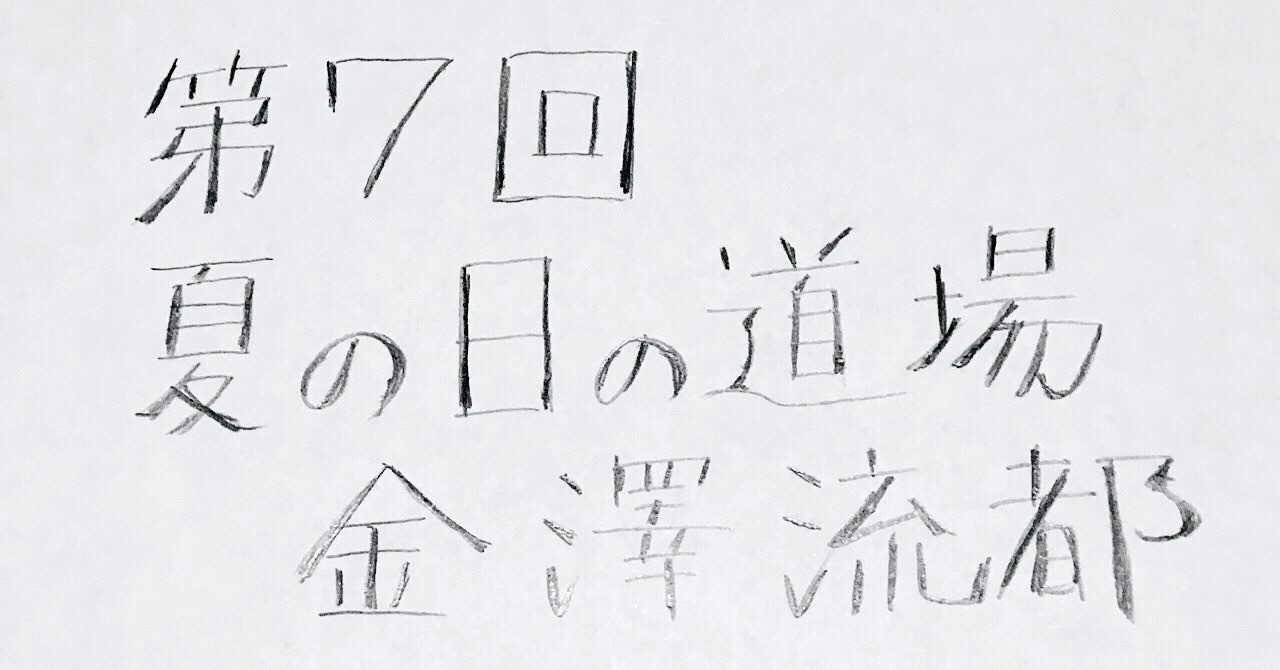 第7回
夏の日の道場
金澤流都